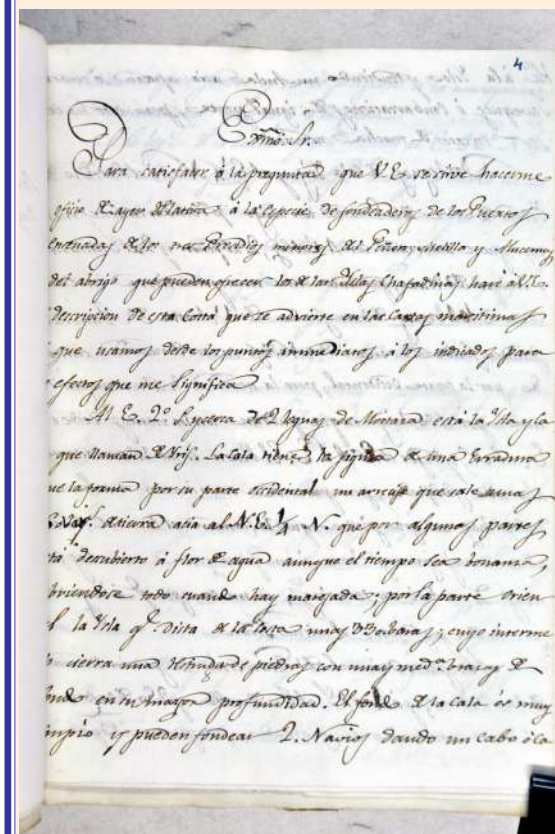 4
Exmo. Sr.
Para satisfacer á la pregunta que V.E. se sirve hacerme
oficio de ayer relativa á la especie de fondeaderos de los Puertos
ensenadas de los tres Presidios menores del Peñon, Melilla y Alucemas
del abrigo que pueden ofrecer los de las Yslas Chafarinas, haré á V.E.
descripcion de esta Costa que se advierte en las Cartas maritimas
que usamos desde los puntos inmediatos á los indicados para
efectos que me significa.
Al E. 2º S. y cerca de 2 leguas de está la Ysla y la
que llaman de Yris. La Cala tiene la figura de una herradura,
ue la forma por su parte occidental un arrecife que sale unas
de tierra acia al N.E. 1/4 N. que por algunas partes
tá descubierto á flor de agua aunque el tiempo sea bonanza,
briendose todo cuando hay marejada; por la parte orien
l la Ysla qe. dista de la Costa unas 330 baras; cuyo interme
o cierra una de piedras con unas med.s brazas de
ondo en su mayor profundidad. El fondo de la cala es muy
impio y pueden fondear 2. Navios dando un cabo á la